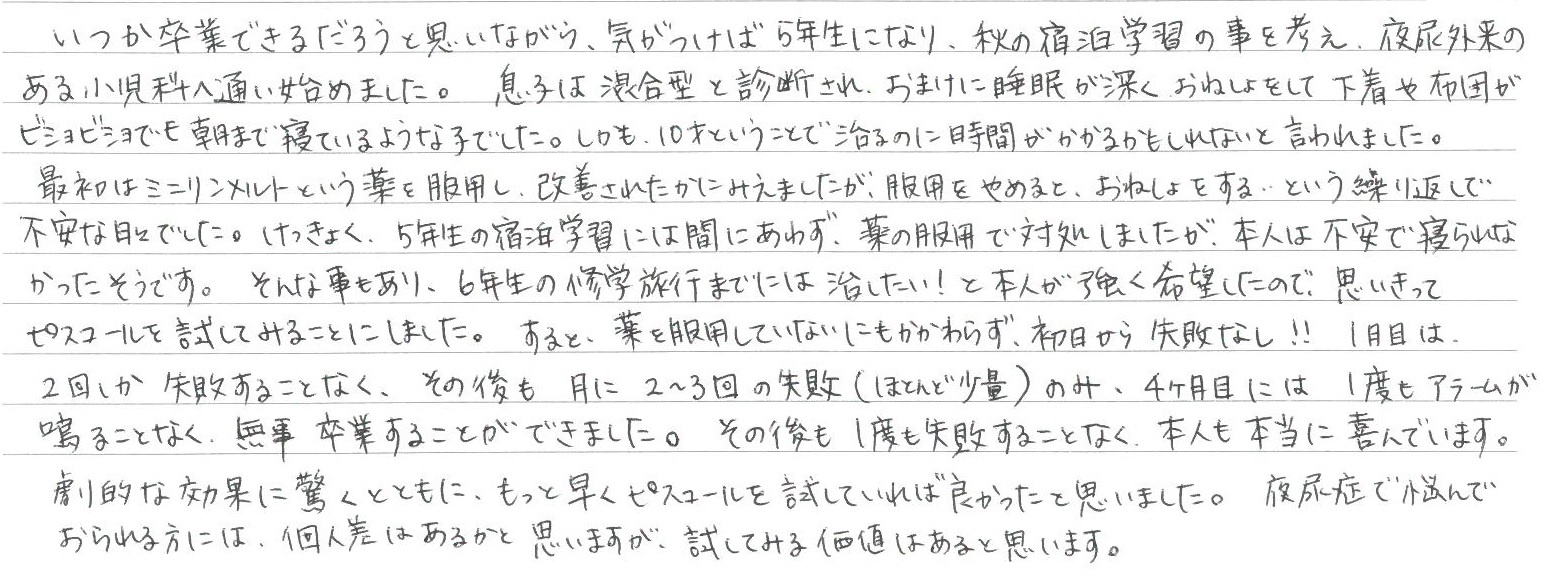 いつか卒業できるだろうと思いながら、気がつけば5年生になり、秋の宿泊学習の事を考え、夜尿外来の
ある小児科へ通い始めました。 息子は混合型と診断され、おまけに睡眠が深くおねしょをして下着や布団が
ビショビショでも朝まで寝ているような子でした。しかも、10才ということで治るのに時間がかかるかもしれないと言われました。
最初はミニリンメルトという薬を服用し、改善されたかにみえましたが、服用をやめると、おねしょをする‥という繰り返しで
不安な日々でした。けっきょく、5年生の宿泊学習には間にあわず、薬の服用で対処しましたが、本人は不安で寝られな
かったそうです。 そんな事もあり、6年生の修学旅行までには治したい!と本人が強く希望したので、思いきって
ピスコールを試してみることにしました。 すると、薬を服用していないにもかかわらず、初日から失敗なし!! 1月目は、
2回しか失敗することなく、その後も月に2~3回の失敗(ほとんど少量)のみ、4ヶ月目には1度もアラームが
鳴ることなく、無事卒業することができました。 その後も1度も失敗することなく、本人も本当に喜んでいます。
劇的な効果に驚くとともに、もっと早くピスコールを試していれば良かったと思いました。 夜尿症で悩んで
おられる方には、個人差はあるかと思いますが、試してみる価値はあると思います。